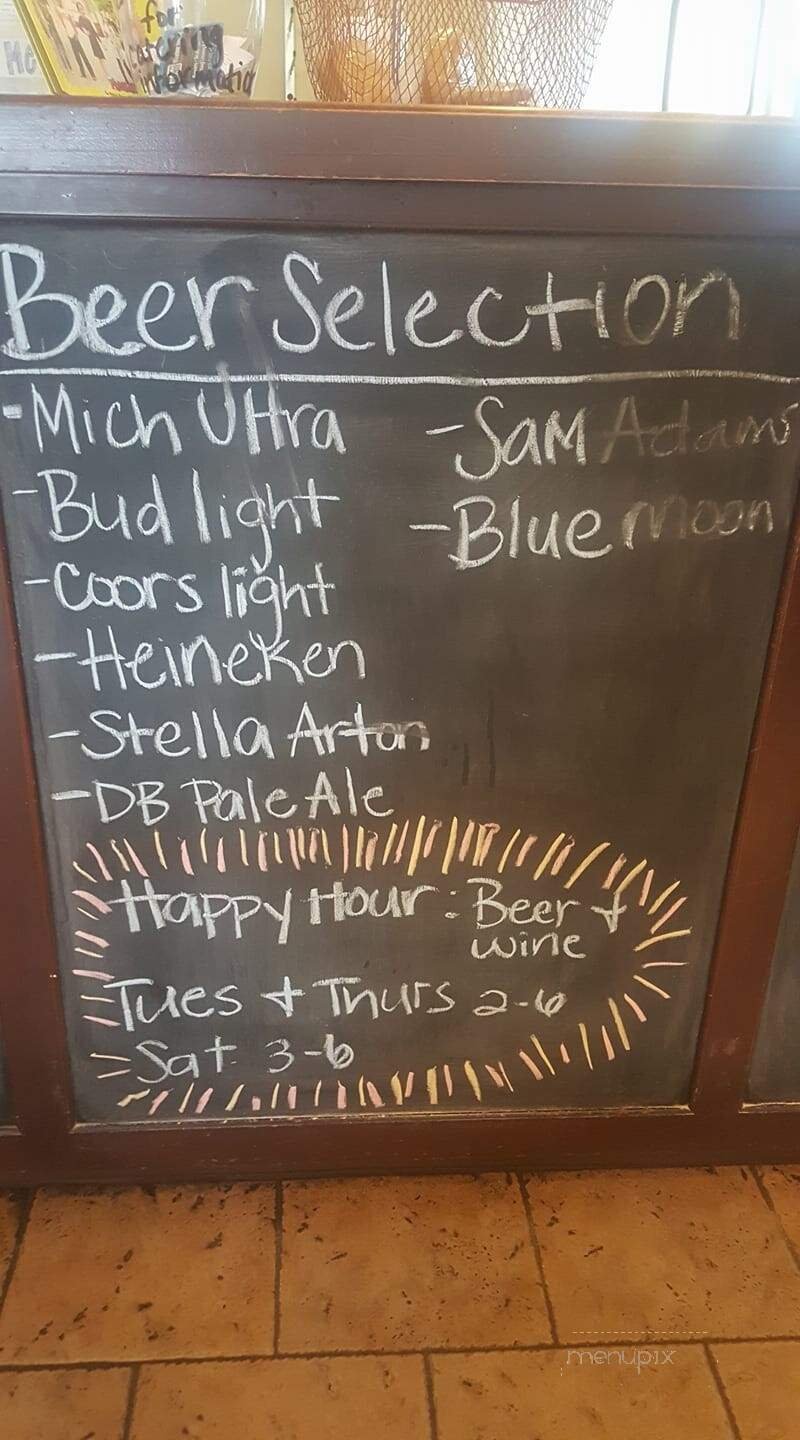 for
catering
informatio
Me
Beer Selection
-Mich Ultra
-Bud light
-Coors light
-Heineken
-Stella Arton
-DB Pale Ale
-Sam Adams
-Blue moon
Happy Hour: Beer +
wine
Tues + Thurs 2-6
Sat 3-6
menupix